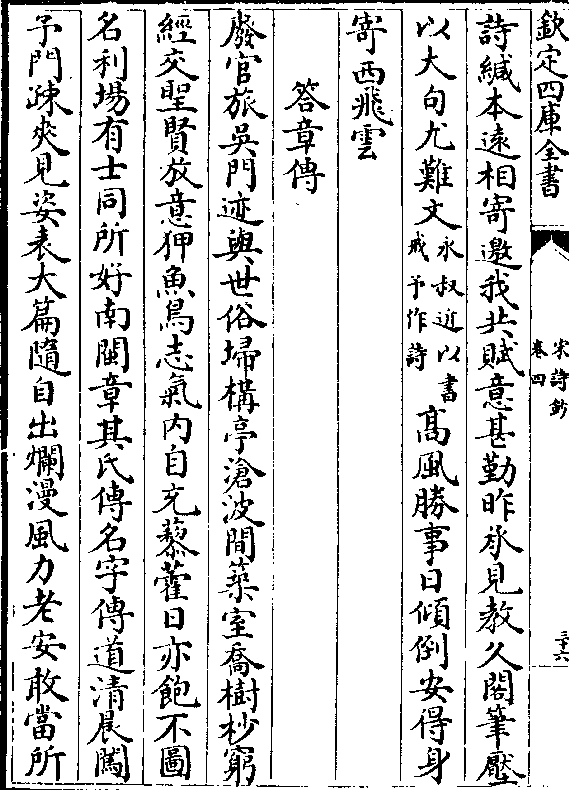 欽定四庫全書
宋詩鈔
卷四
三十六
詩緘本遠相寄邀我共賦意甚勤昨承見教久閣筆壓
以大句尤難文永叔近以書戒予作詩高風勝事日傾倒安得身
寄西飛雲
答章傳
廢官旅吳門迹與世俗埽構亭滄波間築室喬樹杪窮
經交聖賢放意狎魚鳥志氣内自充藜藿日亦飽不圖
名利場有士同所好南閩章其氏傳名字傳道清晨闖
予門疎爽見姿表大篇隨自出爛漫風力老安敢當所